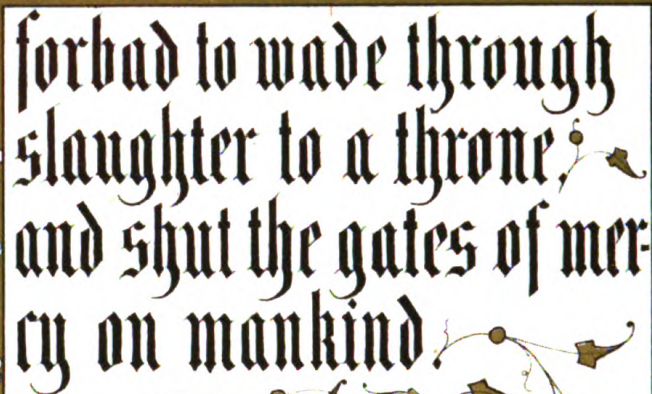 forbad to wade through
slaughter to a throne,
and shut the gates of mer-
cy on mankind.